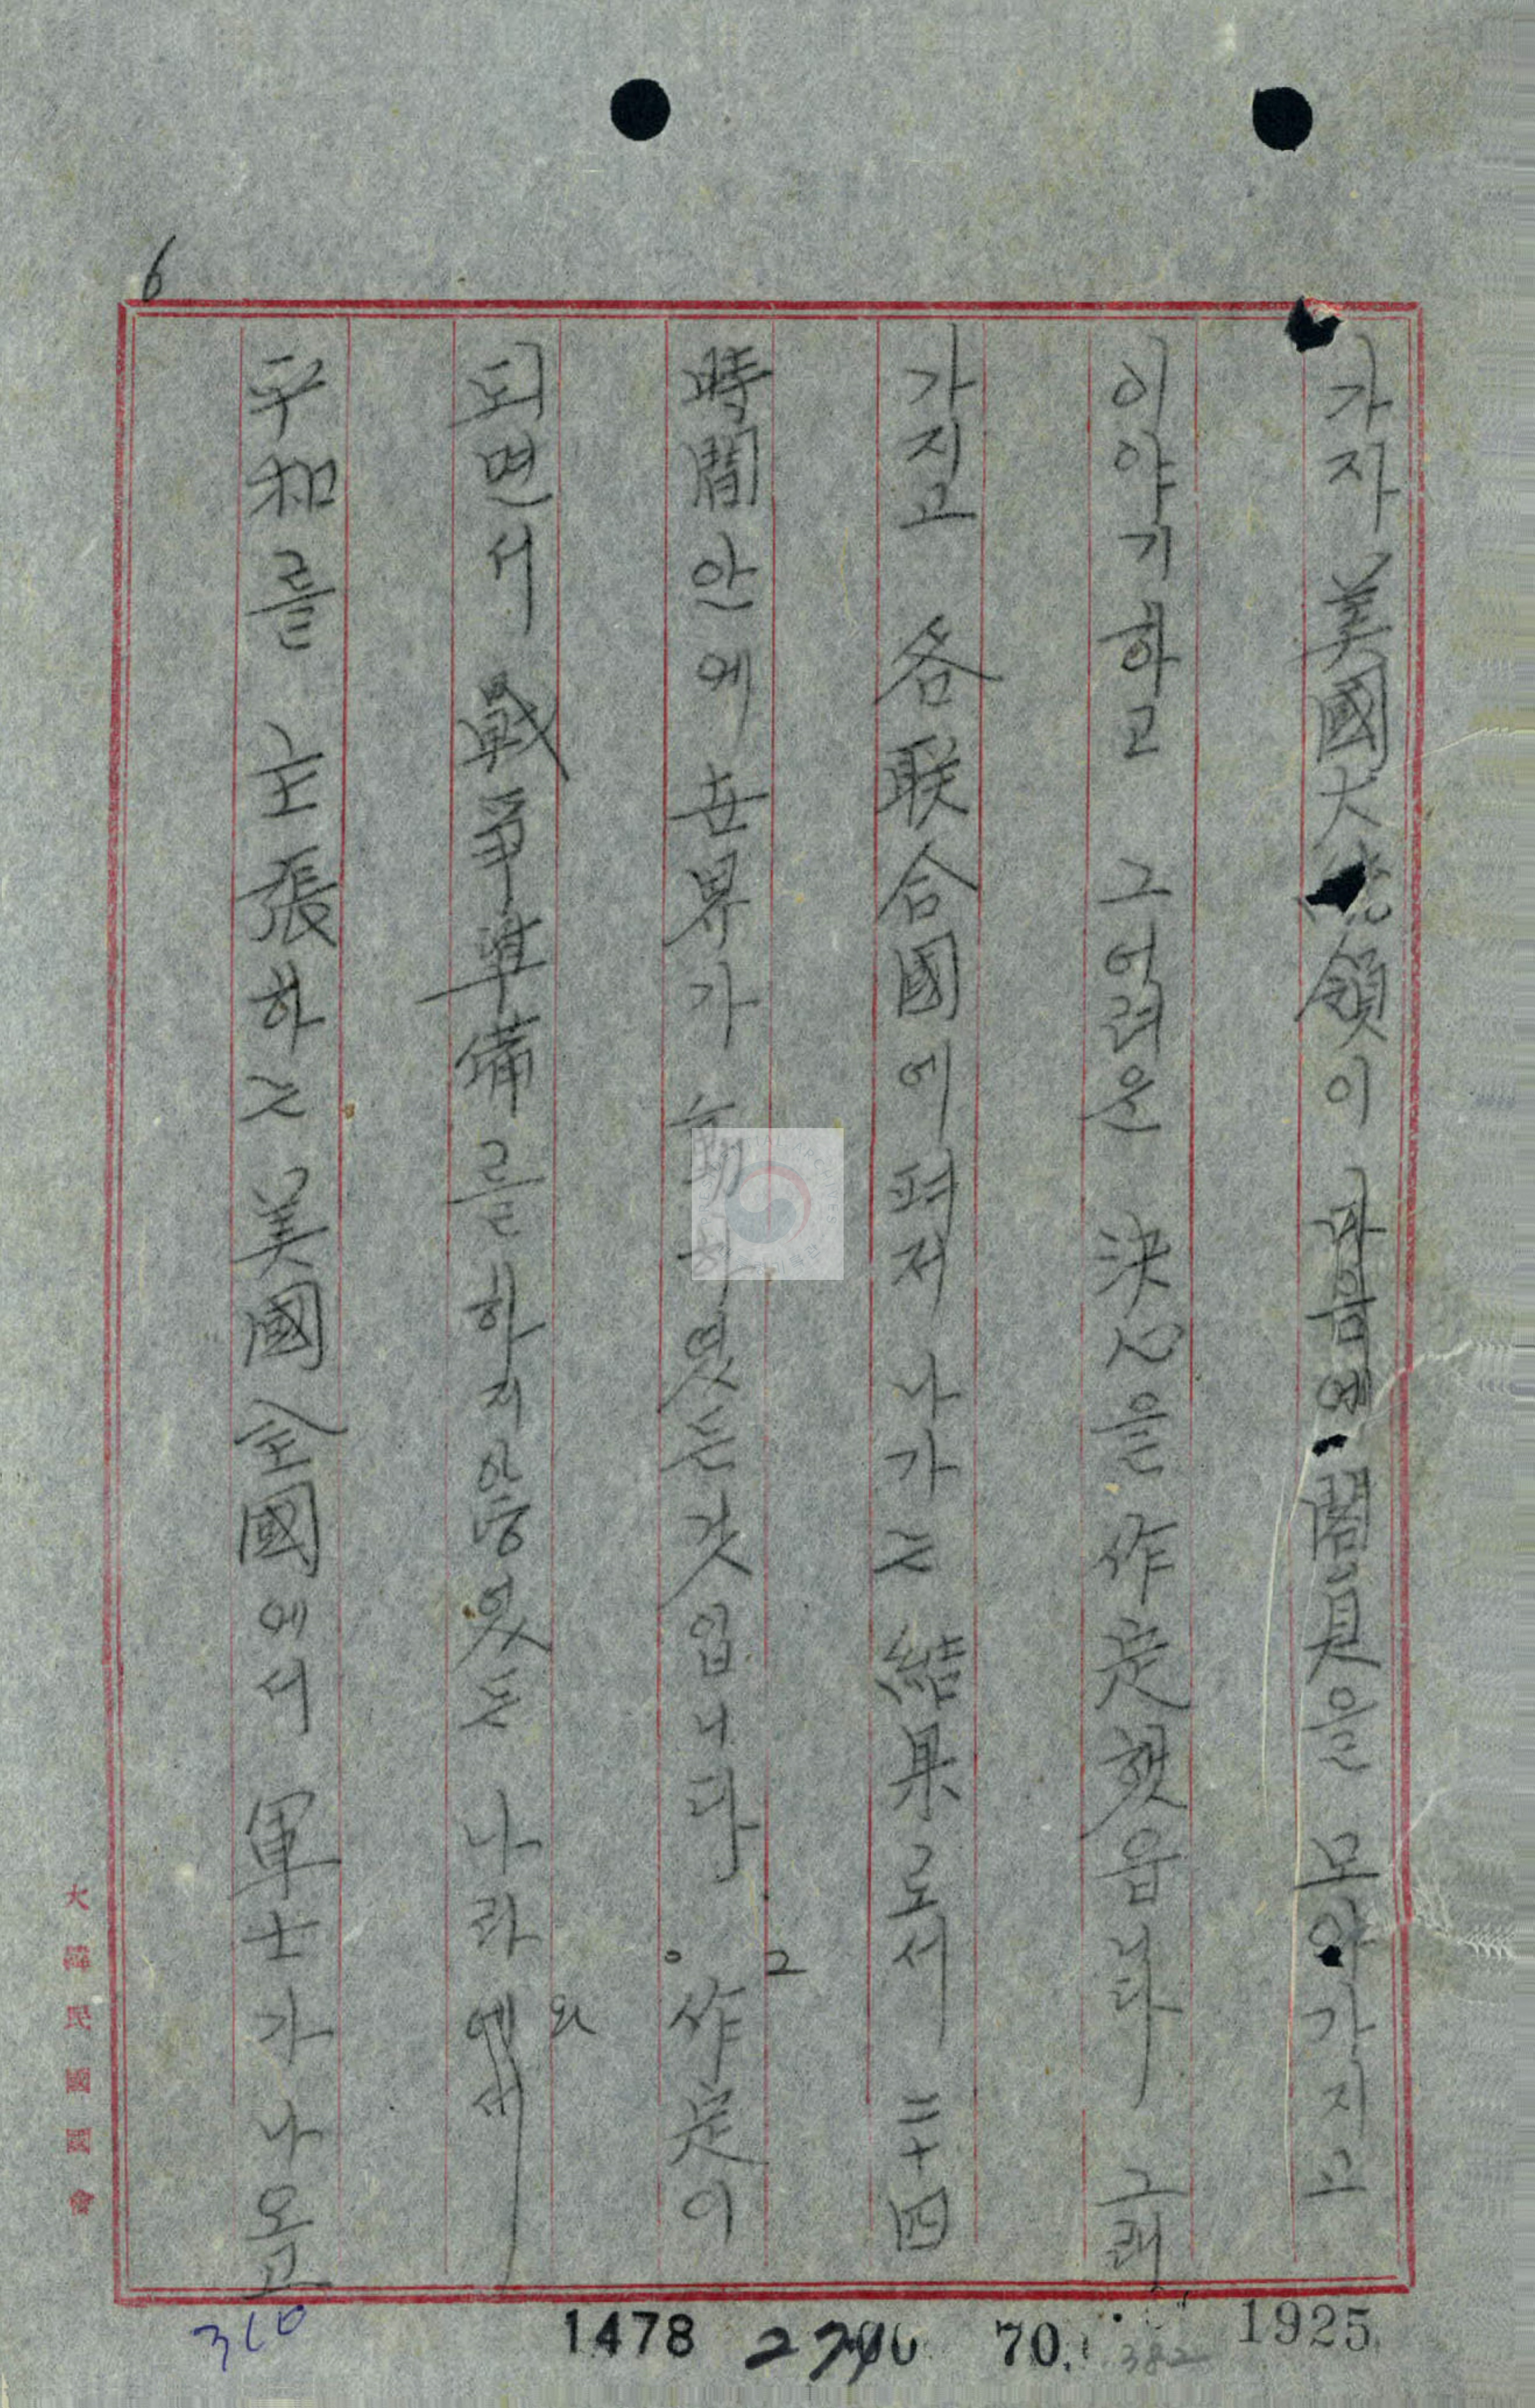 6
가자 美國大統領이 마음에 閣員을 모아가지고
이야기하고 그 어려운 決心을 作定했읍니다 그래
가지고 各 联合國에 펴저 나가는 結果로서 二十四
時間 안에 世界가 動하였든 것입니다。 그 作定이
되면서 戰爭準備를 하지 않코 있든 나라와
平和를 主張하는 美國 全國에서 軍士가 나오고
大韓民國國會
310
1478
70.
382
1925